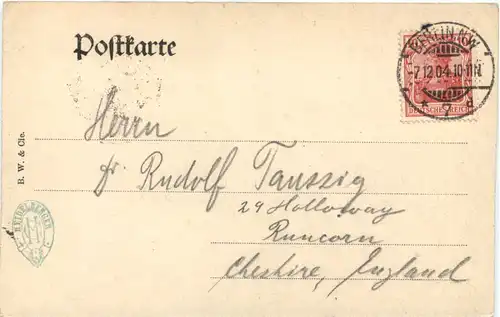 Postkarte
BERLIN N.W.
-7.12.04.10-11N.
* 7 d
DEUTSCHES REICH
Herrn
Dr. Rudolf Taussig
29 Holloway
Runcorn
Cheshire, England
B. W. & Cie.
HEIDELBERGER